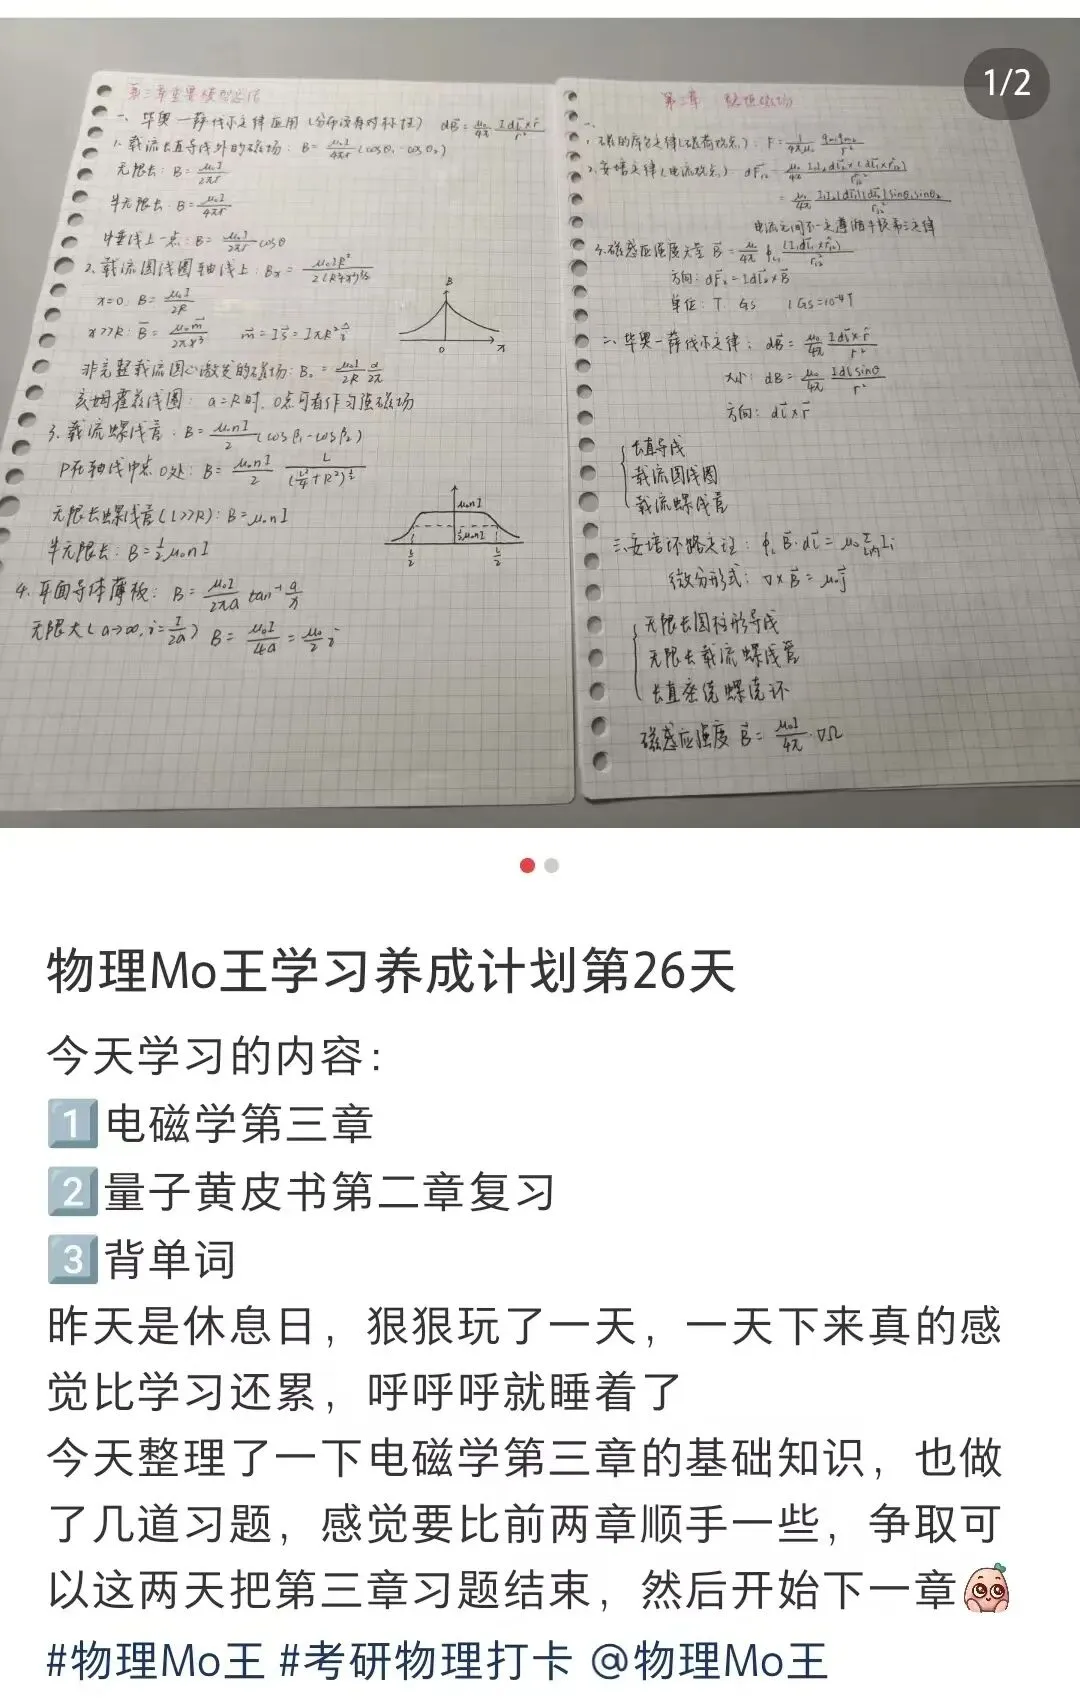 1/2
第三章重要模型总结
一、毕奥-萨伐尔定律应用(分布没有对称性) dB⃗ = μ₀/4π Idl⃗×r̂/r²
1. 载流长直导线外的磁场: B = μ₀I/4πr (cosθ₁-cosθ₂)
无限长: B = μ₀I/2πr
半无限长: B = μ₀I/4πr
中垂线上一点: B = μ₀I/2πr cosθ
2. 载流圆线圈轴线上: Bx = μ₀IR²/2(R²+x²)^3/2
B
x=0: B = μ₀I/2R
x>>R: B⃗ = μ₀m⃗/2πx³ m⃗ = IS⃗ = IπR²î
0 x
非完整载流圆心激发的磁场: B₀ = μ₀I/2R α/2π
亥姆霍兹线圈: a=R时, O点可看作匀强磁场
3. 载流螺线管: B = μ₀nI/2 (cosβ₁-cosβ₂)
P在轴线中点O处: B = μ₀nI/2 L/(L²/4+R²)^½
无限长螺线管(L>>R): B=μ₀nI
μ₀nI
½μ₀nI
半无限长: B=½μ₀nI
L/2 L/2
4. 平面导体薄板: B = μ₀I/2πa tan⁻¹ a/x
无限大(a→∞, i=I/2a) B = μ₀I/4a = μ₀/2 i
第三章 稳恒磁场
一、
1. 磁的库仑定律(磁荷观点): F = 1/4πμ₀ qm₁qm₂/r²
2. 安培定律(电流观点): dF⃗₁₂ = μ₀/4π I₁I₂dl⃗₂×(dl⃗₁×r̂₁₂)/r₁₂²
= μ₀/4π I₁I₂|dl⃗₁||dl⃗₂|sinθ₁sinθ₂/r₁₂²
电流之间不一定遵循牛顿第三定律
3. 磁感应强度矢量 B⃗ = μ₀/4π ∮L₁ (I₁dl⃗₁×r̂₁₂)/r₁₂²
方向: dF⃗₂ = Idl⃗₂×B⃗
单位: T Gs 1Gs=10⁻⁴T
二、毕奥-萨伐尔定律: dB⃗ = μ₀/4π Idl⃗×r̂/r²
大小: dB = μ₀/4π Idlsinθ/r²
方向: dl⃗×r⃗
长直导线
载流圆线圈
载流螺线管
三、安培环路定理: ∮L B⃗·dl⃗ = μ₀ΣL内Ii
微分形式: ∇×B⃗ = μ₀j⃗
无限长圆柱形导线
无限长载流螺线管
长直密绕螺绕环
磁感应强度 B⃗ = μ₀I/4π·∇Ω
物理Mo王学习养成计划第26天
今天学习的内容:
1️⃣电磁学第三章
2️⃣量子黄皮书第二章复习
3️⃣背单词
昨天是休息日，狠狠玩了一天，一天下来真的感
觉比学习还累，呼呼呼就睡着了
今天整理了一下电磁学第三章的基础知识，也做
了几道习题，感觉要比前两章顺手一些，争取可
以这两天把第三章习题结束，然后开始下一章
#物理Mo王 #考研物理打卡 @物理Mo王